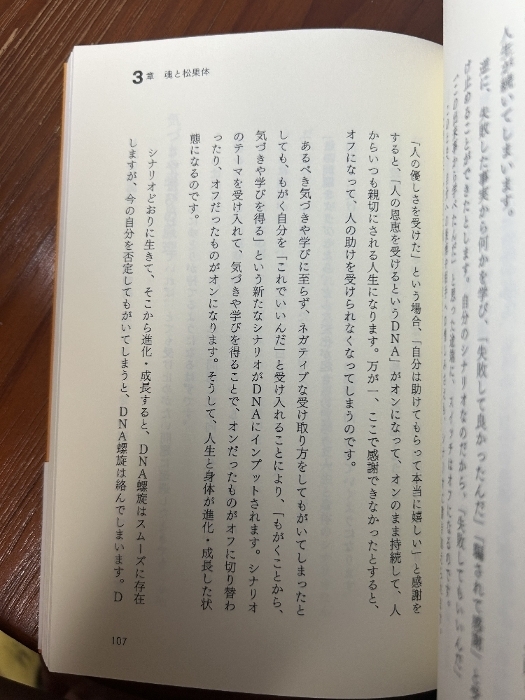 人生が続いてしまいます。
逆に、失敗した事実から何かを学び、「失敗して良かったんだ」「騙されて感謝」と受
け止めることができたとします。自分のシナリオなのだから、「失敗してもいいんだ」
3章 魂と松果体
「人の優しさを受けた」という場合、「自分は助けてもらって本当に嬉しい」と感謝を
すると、「人の恩恵を受けるというDNA」がオンになって、オンのまま持続して、人
からいつも親切にされる人生になります。万が一、ここで感謝できなかったとすると、
オフになって、人の助けを受けられなくなってしまうのです。
あるべき気づきや学びに至らず、ネガティブな受け取り方をしてもがいてしまったと
しても、もがく自分を「これでいいんだ」と受け入れることにより、「もがくことから、
気づきや学びを得る」という新たなシナリオがDNAにインプットされます。シナリオ
のテーマを受け入れて、気づきや学びを得ることで、オンだったものがオフに切り替わ
ったり、オフだったものがオンになります。そうして、人生と身体が進化・成長した状
態になるのです。
シナリオどおりに生きて、そこから進化・成長すると、DNA螺旋はスムーズに存在
しますが、今の自分を否定してもがいてしまうと、DNA螺旋は絡んでしまいます。D
107